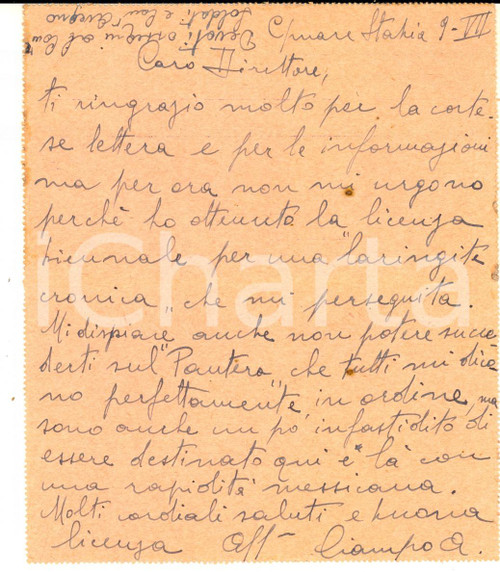 C/mare Stabia 9-VIII
Caro Direttore,
ti ringrazio molto per la corte-
se lettera e per le informazioni
ma per ora non mi urgono
perchè ho ottenuto la licenza
biennale per una "laringite
cronica" che mi perseguita.
Mi dispiace anche non poter succe
derti sul "Pantera" che tutti mi dico
no perfettamente in ordine, ma
sono anche un po' infastidito di
essere destinato qui e là con
una rapidità messicana.
Molti cordiali saluti e buona
licenza Aff- Ciampo A.
Devoti ossequi al Com
Soldati e
iCharta